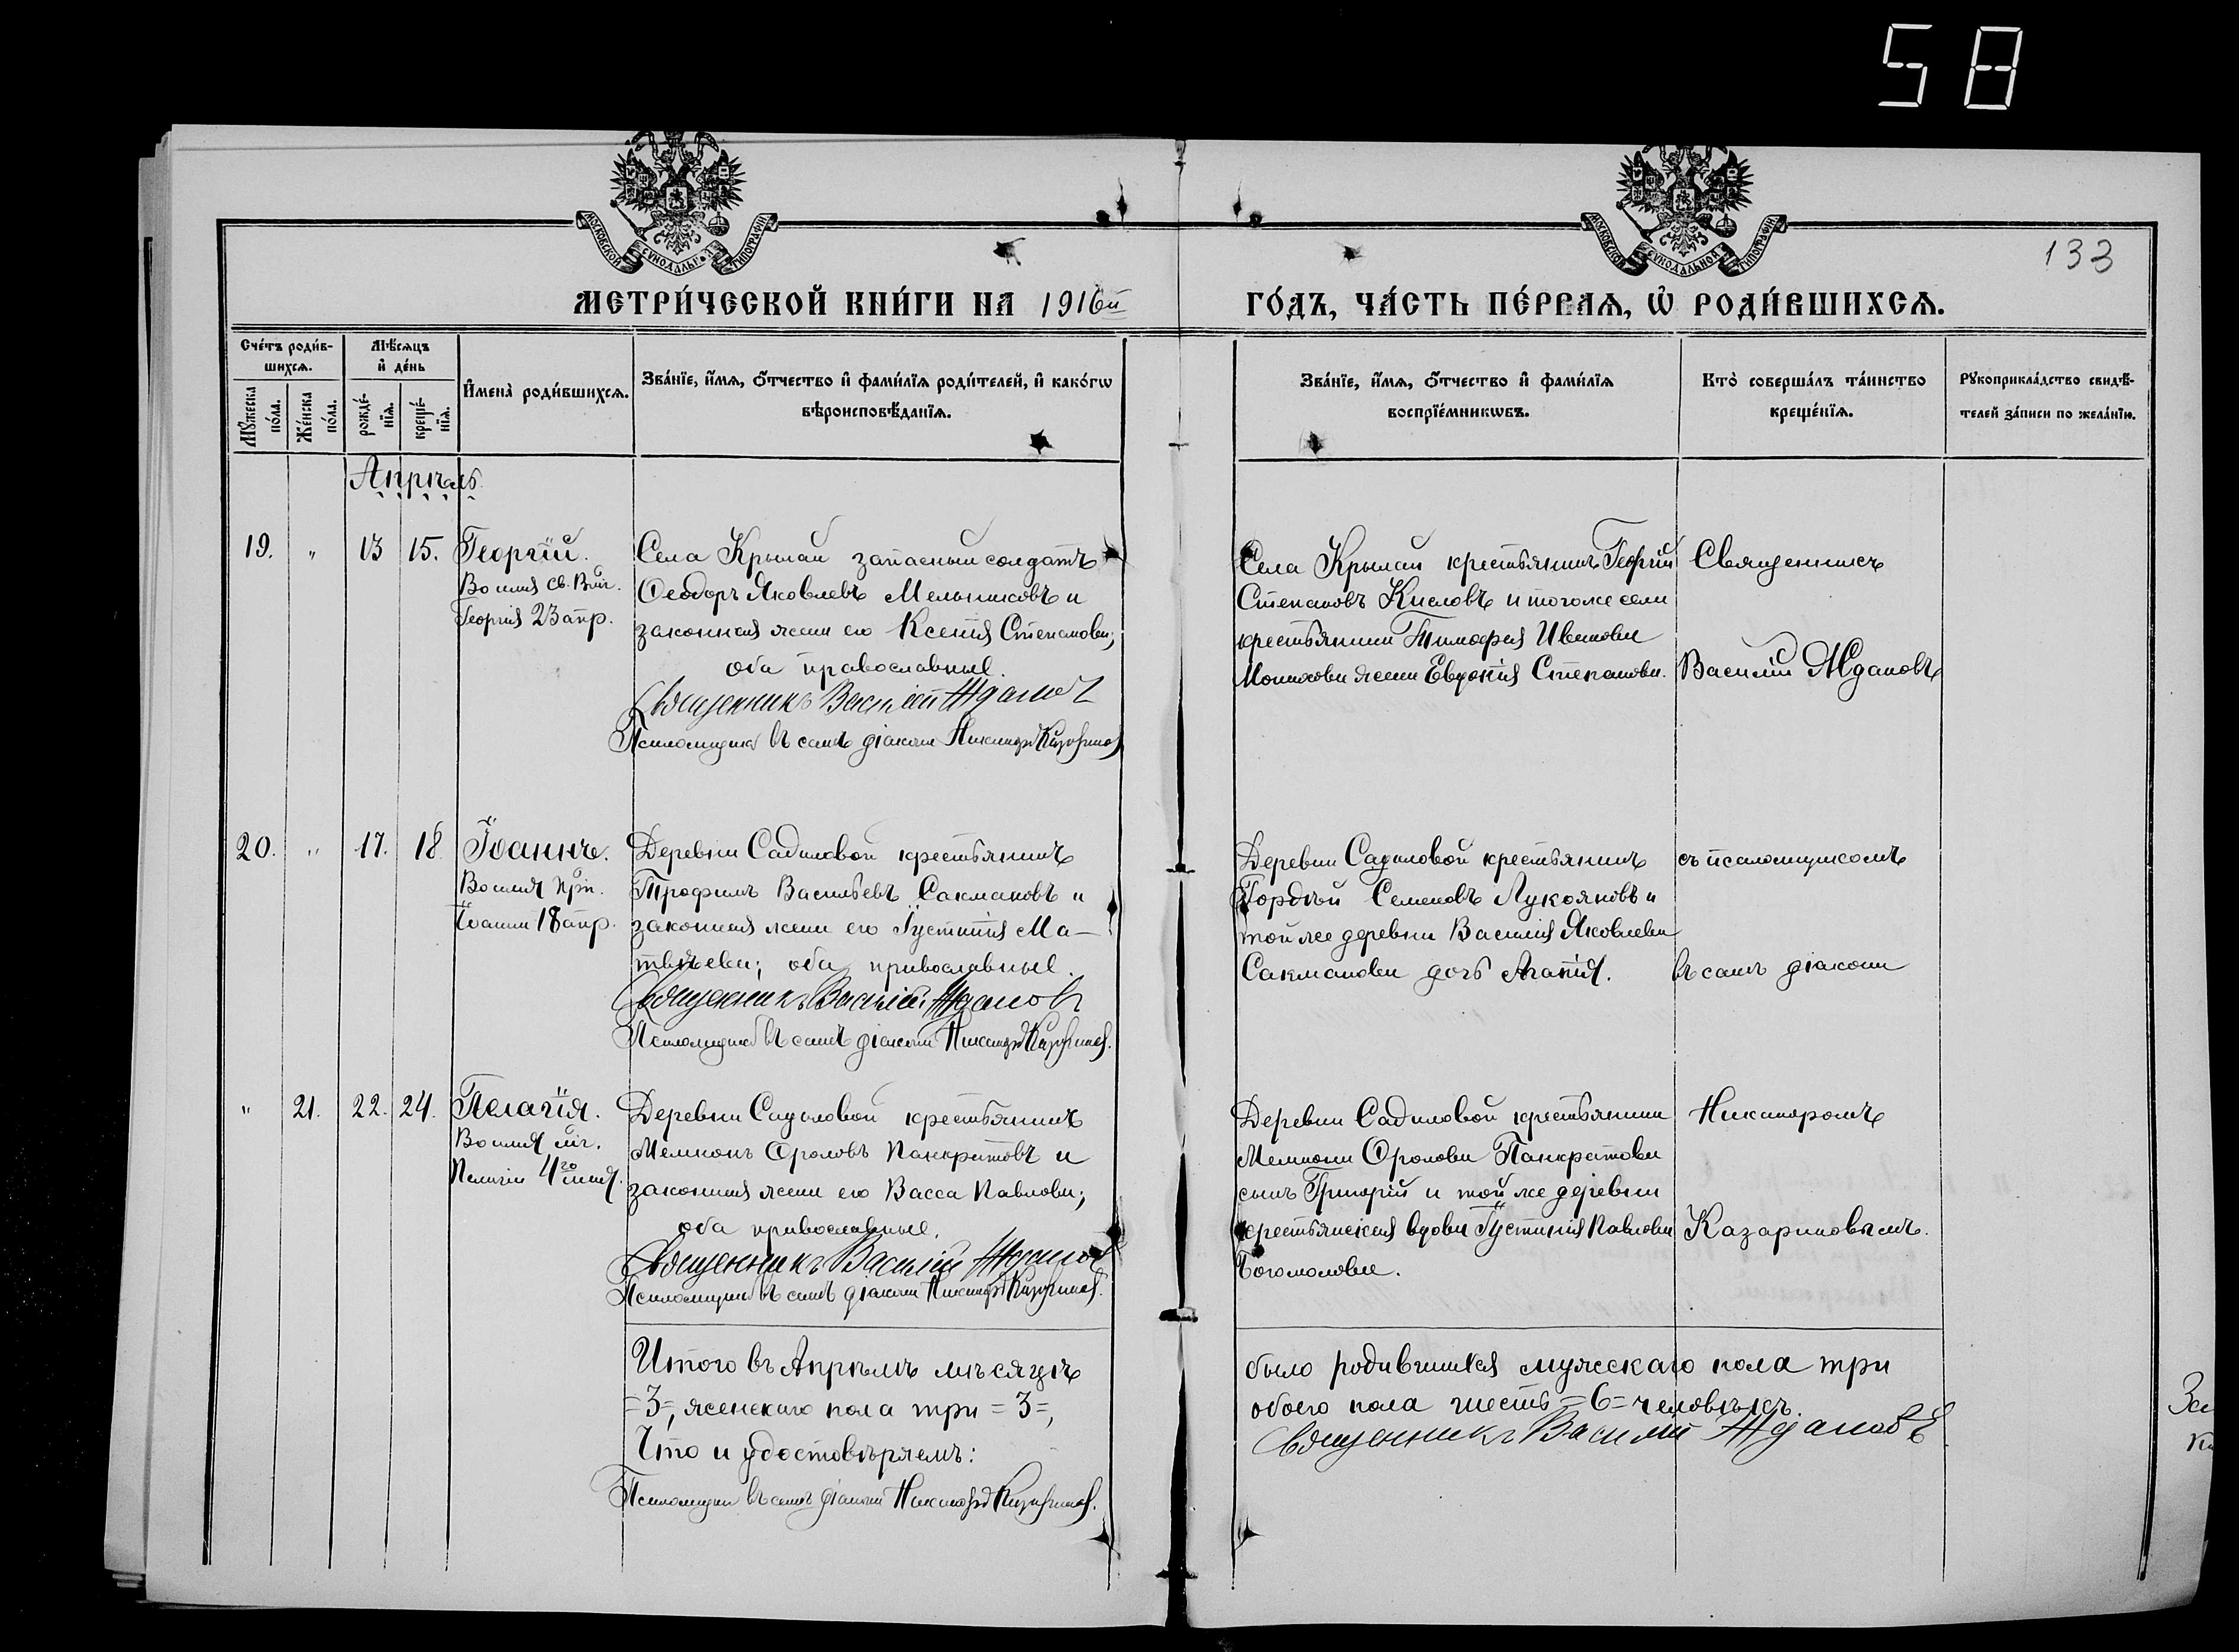 58
МОСКОВСКОЙ СѴНОДАЛЬНОЙ ТИПОГРАФІИ
МОСКОВСКОЙ СѴНОДАЛЬНОЙ ТИПОГРАФІИ
133
МЕТРИ́ЧЕСКОЙ КНИ́ГИ НА 1916й
ГО́ДЪ, ЧА́СТЬ ПЕ́РВАѦ, Ѡ҆ РОДИ́ВШИХСѦ.
Сче́тъ роди́в-
шихсѧ.
Мꙋ́жеска
по́ла.
Же́нска
по́ла.
Мѣ́сѧцъ
и҆ де́нь
рожде́-
нїѧ.
креще́-
нїѧ.
И҆мена̀ роди́вшихсѧ.
Зва́нїе, и҆́мѧ, ѻ҆́тчество и҆ фами́лїѧ роди́телей, и҆ како́гѡ
вѣроисповѣ́данїѧ.
Зва́нїе, и҆́мѧ, ѻ҆́тчество и҆ фами́лїѧ
воспрїе́мникѡвъ.
Кто̀ соверша́лъ та́инство
креще́нїѧ.
Рꙋкоприкла́дство свидѣ́-
телей за́писи по жела́нїю.
Апрѣль
19. " 13 15. Георгій.
Во имя св. Вмч.
Георгія 23 апр.
Села Крылай запасный солдатъ
Ѳеодоръ Яковлевъ Мельниковъ и
законная жена его Ксенія Степанова;
оба православные.
Священникъ Василій Ждановъ
Псаломщикъ въ санѣ діакона Никаноръ Казариновъ
Села Крылай крестьянинъ Георгій
Степановъ Кисловъ и того же села
крестьянина Тимофея Иванова
Монахова жена Евдокія Степанова.
Священникъ
Василій Ждановъ
20. " 17. 18 Іоаннъ.
Во имя прп.
Іоанна 18 апр.
Деревни Садиловой крестьянинъ
Трофимъ Васильевъ Сакмановъ и
законная жена его Іустинія Ма-
твѣева; оба православные.
Священникъ Василій Ждановъ
Псаломщикъ въ санѣ діакона Никаноръ Казариновъ.
Деревни Садиловой крестьянинъ
Гордѣй Семеновъ Лукояновъ и
той же деревни Василія Яковлева
Сакманова дочь Агапія.
съ псаломщикомъ
въ санѣ діакона
" 21. 22. 24. Пелагія.
Во имя мч.
Пелагіи 4го мая.
Деревни Садиловой крестьянинъ
Мемнонъ Фроловъ Панкратовъ и
законная жена его Васса Павлова;
оба православные.
Священникъ Василій Ждановъ
Псаломщикъ въ санѣ діакона Никаноръ Казариновъ.
Деревни Садиловой крестьянина
Мемнона Фролова Панкратова
сынъ Григорій и той же деревни
крестьянская вдова Іустинія Павлова
Богомолова.
Никаноромъ
Казариновымъ.
Итого въ Апрѣлѣ мѣсяцѣ
было родившихся мужескаго пола три
=3=, женскаго пола три =3=,
обоего пола шесть =6= человѣкъ.
Что и удостовѣряемъ:
Священникъ Василій Ждановъ
Псаломщикъ въ санѣ діакона Никаноръ Казариновъ.